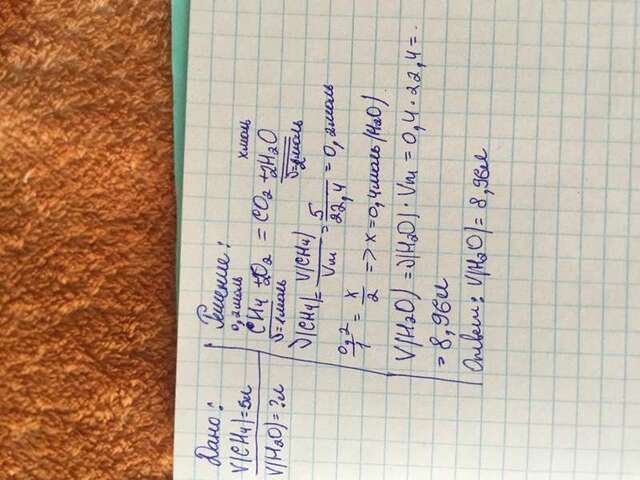 Дано:
V(CH4)=5л
V(H2O)=?л
Решение:
0,2моль
xмоль
CH4 + 2O2 = CO2 + 2H2O
ν=1моль
ν=2моль
ν(CH4)= V(CH4)/Vm = 5/22,4 = 0,2моль
0,2/1 = x/2 => x=0,4моль(H2O)
V(H2O) = ν(H2O)·Vm = 0,4·22,4=
=8,96л
Ответ: V(H2O)= 8,96л